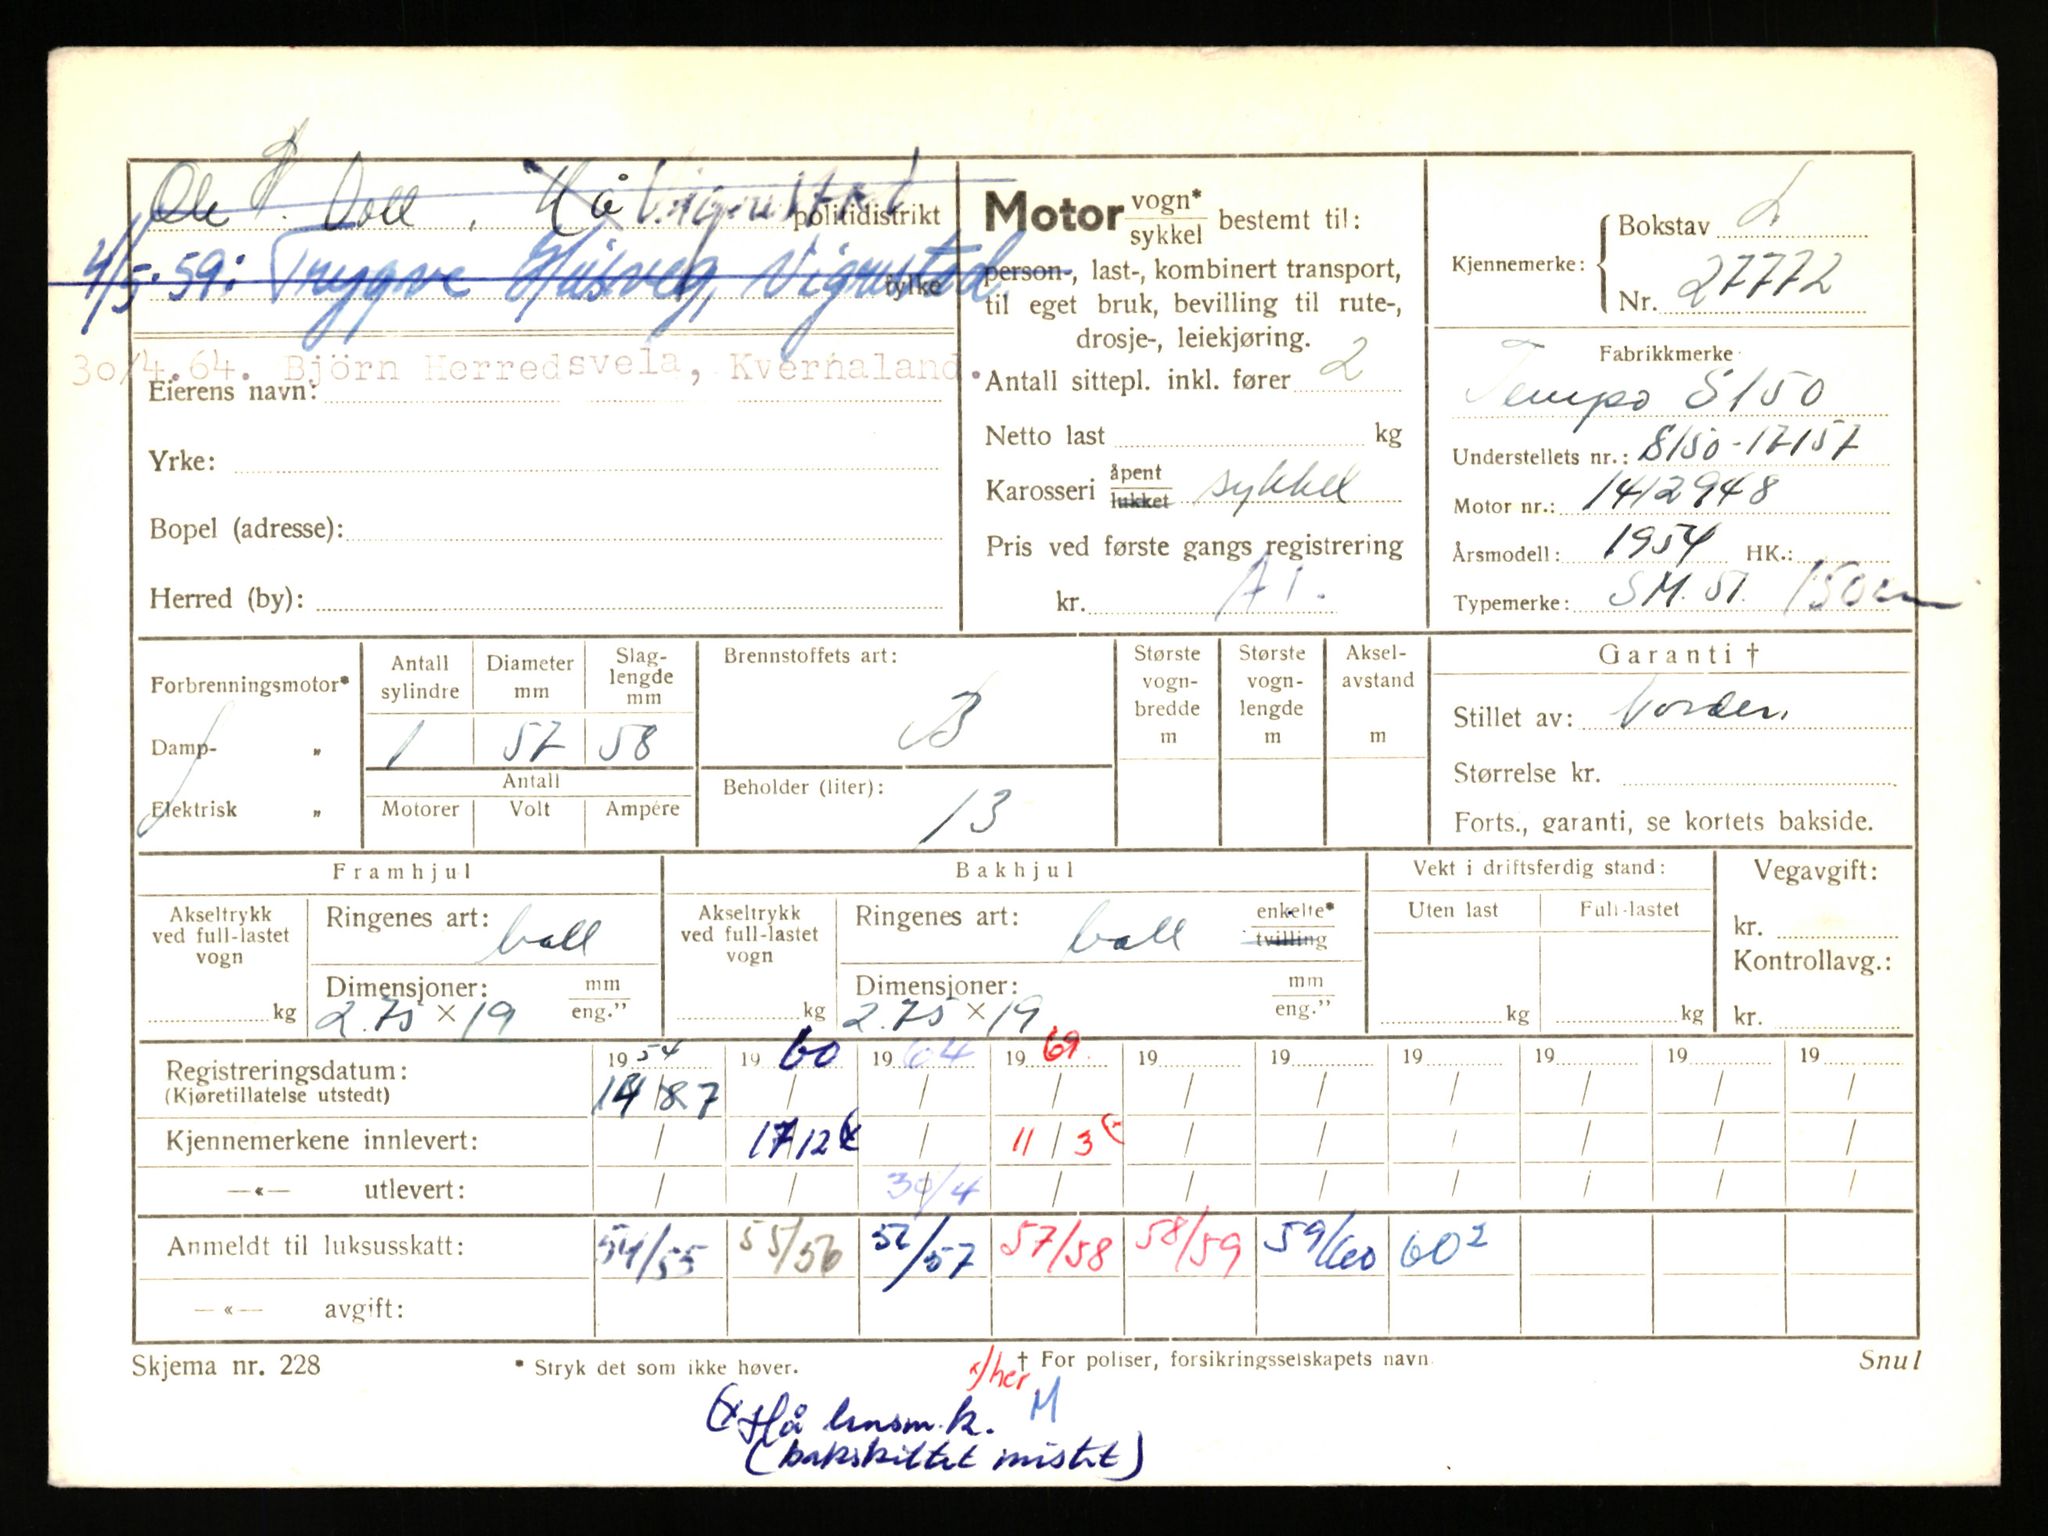 Ole P. Voll, Hå Vigrestad politidistrikt
4/5-59: Trygve Husveg, Vigrestad fylke
30/4.64. Björn Herredsvela, Kvernaland.
Eierens navn:
Yrke:
Bopel (adresse):
Herred (by):
Motor vogn* sykkel bestemt til:
person-, last-, kombinert transport,
til eget bruk, bevilling til rute-,
drosje-, leiekjøring.
Antall sittepl. inkl. fører 2
Netto last kg
Karosseri åpent lukket sykkel
Pris ved første gangs registrering
kr. A 1.
Kjennemerke: Bokstav L
Nr. 27772
Fabrikkmerke
Tempo S150
Understellets nr.: S150-17157
Motor nr.: 1412948
Årsmodell: 1954 HK.:
Typemerke: SM. 51. 150cm
Forbrenningsmotor*
Damp- "
Elektrisk "
Antall sylindre 1
Diameter mm 57
Slag-lengde mm 58
Antall
Motorer Volt Ampére
Brennstoffets art: B
Beholder (liter): 13
Største vogn-bredde m
Største vogn-lengde m
Aksel-avstand m
Garanti †
Stillet av: Norden.
Størrelse kr.
Forts., garanti, se kortets bakside.
Framhjul
Akseltrykk ved full-lastet vogn kg
Ringenes art: ball
Dimensjoner: mm eng."
2.75 × 19
Bakhjul
Akseltrykk ved full-lastet vogn kg
Ringenes art: ball enkelte* tvilling
Dimensjoner: mm eng."
2.75 × 19
Vekt i driftsferdig stand:
Uten last Full-lastet
kg kg
Vegavgift:
kr.
Kontrollavg.:
kr.
1954 1960 1964 1969 19 19 19 19 19 19
Registreringsdatum:
(Kjøretillatelse utstedt)
Kjennemerkene innlevert: / 17/12 (x / 11/3 (x / / / / / /
—«— utlevert: / / 30/4 / / / / / / /
Anmeldt til luksusskatt: 54/55 55/56 56/57 57/58 58/59 59/60 60²
—«— avgift:
Skjema nr. 228 * Stryk det som ikke høver. † For poliser, forsikringsselskapets navn. Snul
x/her
(x Hå lensm.k. M
(bakskiltet mistet)